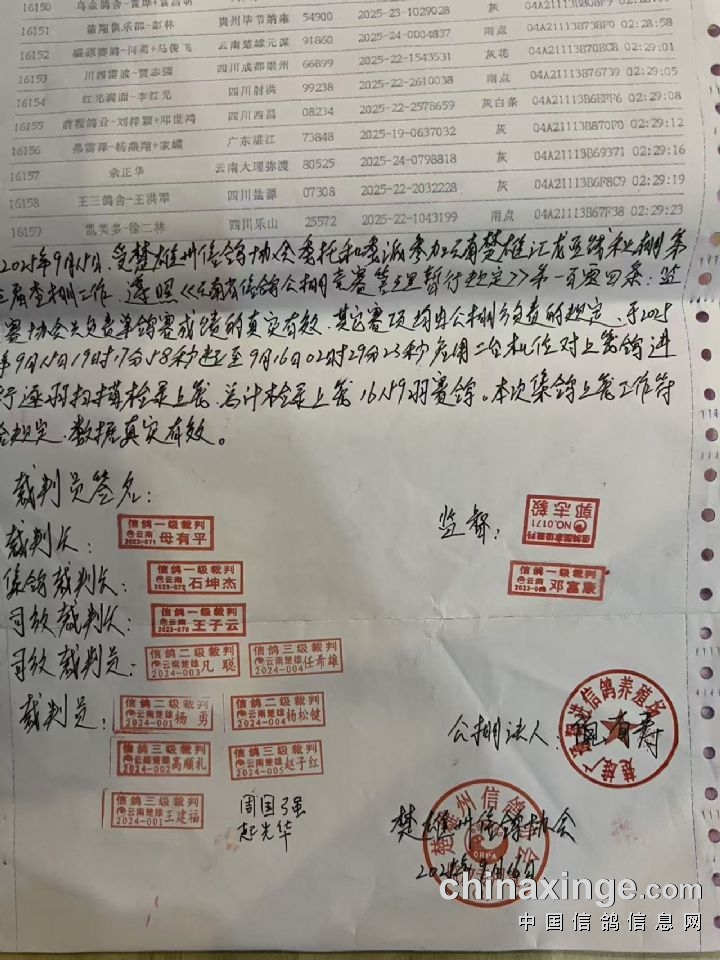 16150 乌金鸽舍-袁烨+袁昌明 54900 2025-23-1029028 灰
16151 翱翔俱乐部-彭林 贵州毕节纳雍 54900 2025-24-0004837 雨点 02:28:58
16152 云南楚雄元谋 91860 2025-22-1543531 灰花 04A21113B70BCB 02:29:01
16153 川西雷波-贾志强 四川成都崇州 66899 2025-22-2610038 雨点 04A21113B76739 02:29:05
16154 红光满面-李红光 四川射洪 99238 2025-22-2578659 灰白条 04A21113B6EFF6 02:29:08
16155 前程鸽业-刘梓颖+邓世鸿 四川西昌 08234 2025-19-0637032 灰 04A21113B870F0 02:29:12
16156 弗雷泽-杨燕翔+家蝶 广东湛江 73848 2025-24-0798818 灰 04A21113B69371 02:29:16
16157 余正华 云南大理弥渡 80525 2025-22-2032228 灰 04A21113B6F8C9 02:29:19
16158 王三鸽舍-王洪翠 四川盐源 07308 2025-22-1043199 雨点 04A21113B67F38 02:29:23
16159 凯美多-徐二林 四川乐山 25572
2025年9月15日,受楚雄州信鸽协会委托和委派参加云南楚雄汇龙亚鸽业公棚第
届查棚工作,遵照《云南省信鸽公棚竞赛管理暂行规定》第一百零四条:监
赛协会只负责单鸽赛成绩的真实有效,其它赛项均由公棚负责的规定,于2025
年9月15日19时17分58秒起至9月16日02时29分23秒启用二台机位对上笼鸽进
行逐羽扫描检录上笼,总计检录上笼16159羽赛鸽。本次集鸽上笼工作符
合规定,数据真实有效。
裁判员签名:
裁判长: 信鸽一级裁判 云南 2023-071 母有平
监督: 信鸽国家级裁判 NO.0171 郭志毅
集鸽裁判长: 信鸽一级裁判 云南 2023-072 石坤杰
信鸽一级裁判 云南 邓富康
司放裁判长: 信鸽一级裁判 云南 2023-070 王子云
司放裁判员: 信鸽二级裁判 云南楚雄 2024-003 凡聪
信鸽三级裁判 云南楚雄 2024-004 任希雄
裁判员: 信鸽二级裁判 云南楚雄 2024-001 杨勇
信鸽二级裁判 云南楚雄 2024-004 杨松健
公棚法人:
信鸽养殖场
信鸽三级裁判 云南楚雄 2024-002 高顺礼
信鸽三级裁判 云南楚雄 2024-005 赵子红
信鸽三级裁判 云南楚雄 2024-001 王建福
周国强
起光华
楚雄州信鸽协会
楚雄州信鸽协会
CRPA
2025年9月16日
chinaxinge.com
中国信鸽信息网